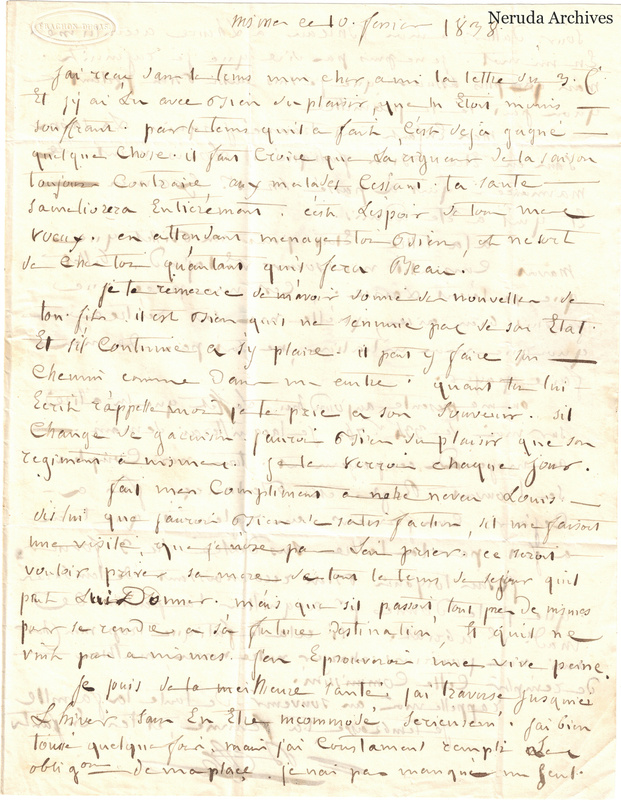 Neruda Archives
Nismes ce 10. fevrier 1838.
J'ai reçu dans le tems mon cher ami la lettre du 3. Ct
Et j'y ai Lu avec Bien du plaisir, que tu Etois, moins
souffrant. par le tems qu'il a fait, c'est deja gagné
quelque chose. il faut Croire que La rigueur de la saison
toujours Contraire aux malades Cessant, ta santé
S'ameliorera Entierement. c'est L'espoir de tous mes
vœux. en attendant menage toi Bien, et ne sort
de chez toi qu'autant qu'il fera Beau.
je te remercie de m'avoir donné des nouvelles de
ton fils. il est Bien qu'il ne s'ennuie pas de son Etat.
Et s'il Continue a s'y plaire. il peut y faire son
Chemin comme dans un autre. quant tu lui
Ecrit rappelle moi je te prie a son Souvenir. s'il
Change de garnison j'aurois Bien du plaisir que son
regiment a nismes. je le verrois chaque jour.
fait mon Compliment a notre neveu Louis
dis lui que j'aurois Bien de satisfaction, s'il me faisoit
une visite, que je n'ose pas L'en prier, ce seroit
vouloir priver sa mere de tout le tems de sejour qu'il
peut Lui Donner. mais que s'il passoit tout pres de nismes
pour se rendre a sa future Destination, Et qu'il ne
vint pas a nismes. j'en Eprouverois une vive peine.
Je jouis de la meilleure santé. j'ai traversé jusqu'ici
L'hiver sans En Etre incommodé, serieusemt. j'ai bien
toussé quelque fois, mais j'ai Constament rempli Les
obligons de ma place. je n'ai pas manqué un seul